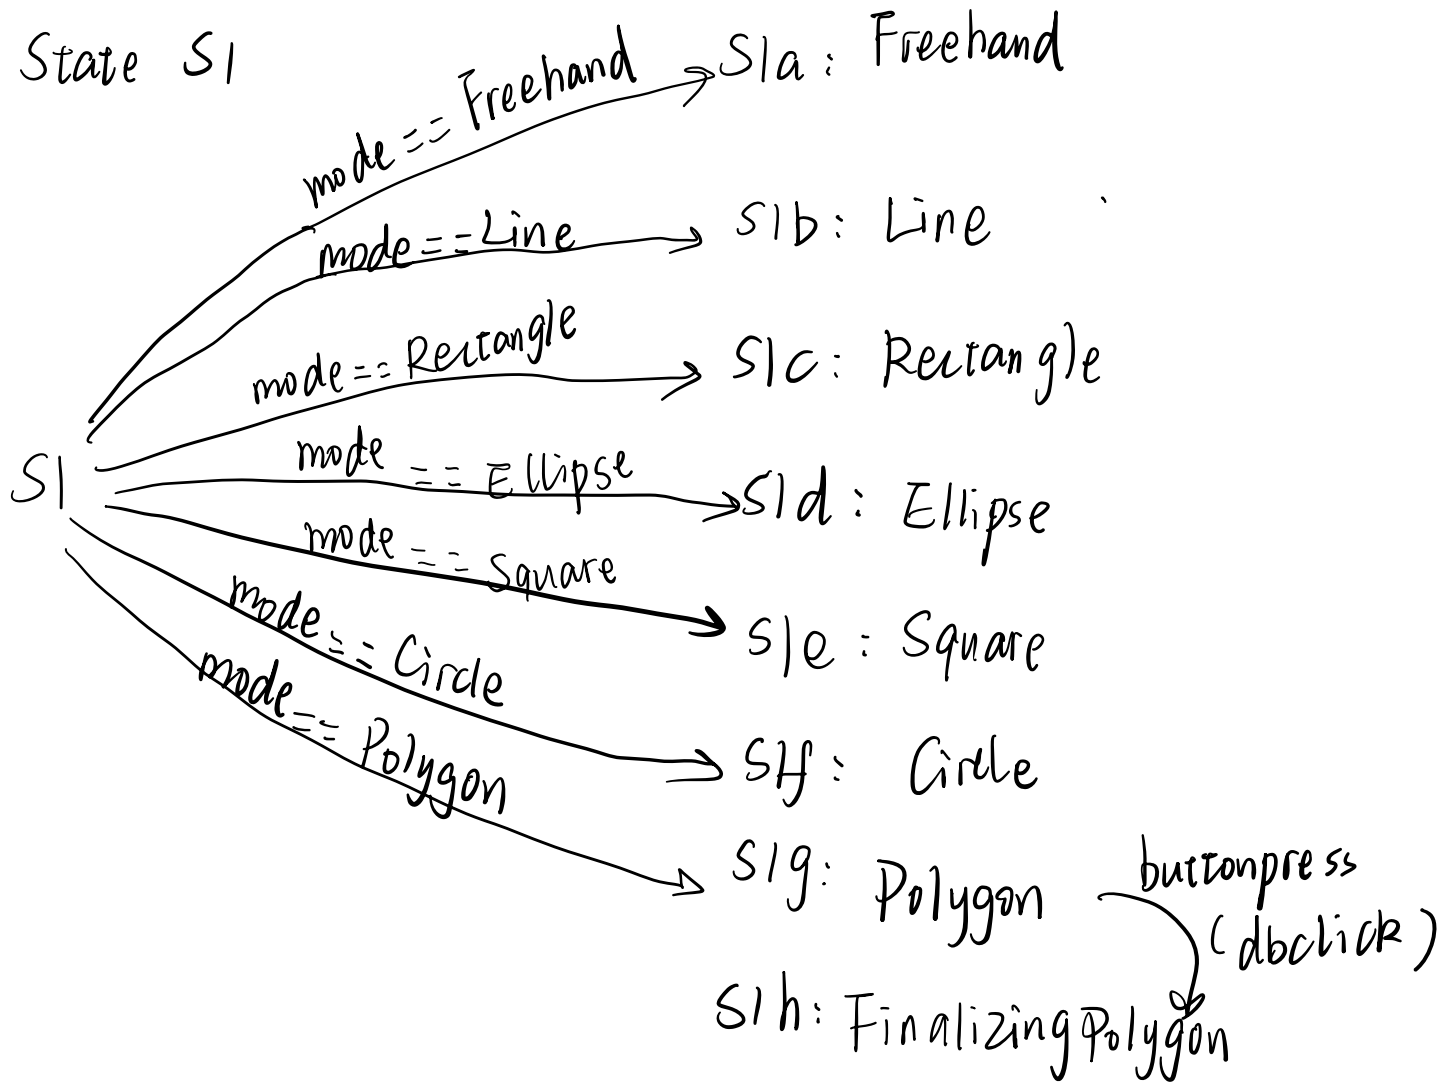 State S1
mode == Freehand
S1a: Freehand
mode == Line
S1b: Line
mode == Rectangle
S1c: Rectangle
S1
mode == Ellipse
S1d: Ellipse
mode == Square
S1e: Square
mode == Circle
S1f: Circle
mode == Polygon
S1g: Polygon
buttonpress
(dbclick)
S1h: FinalizingPolygon